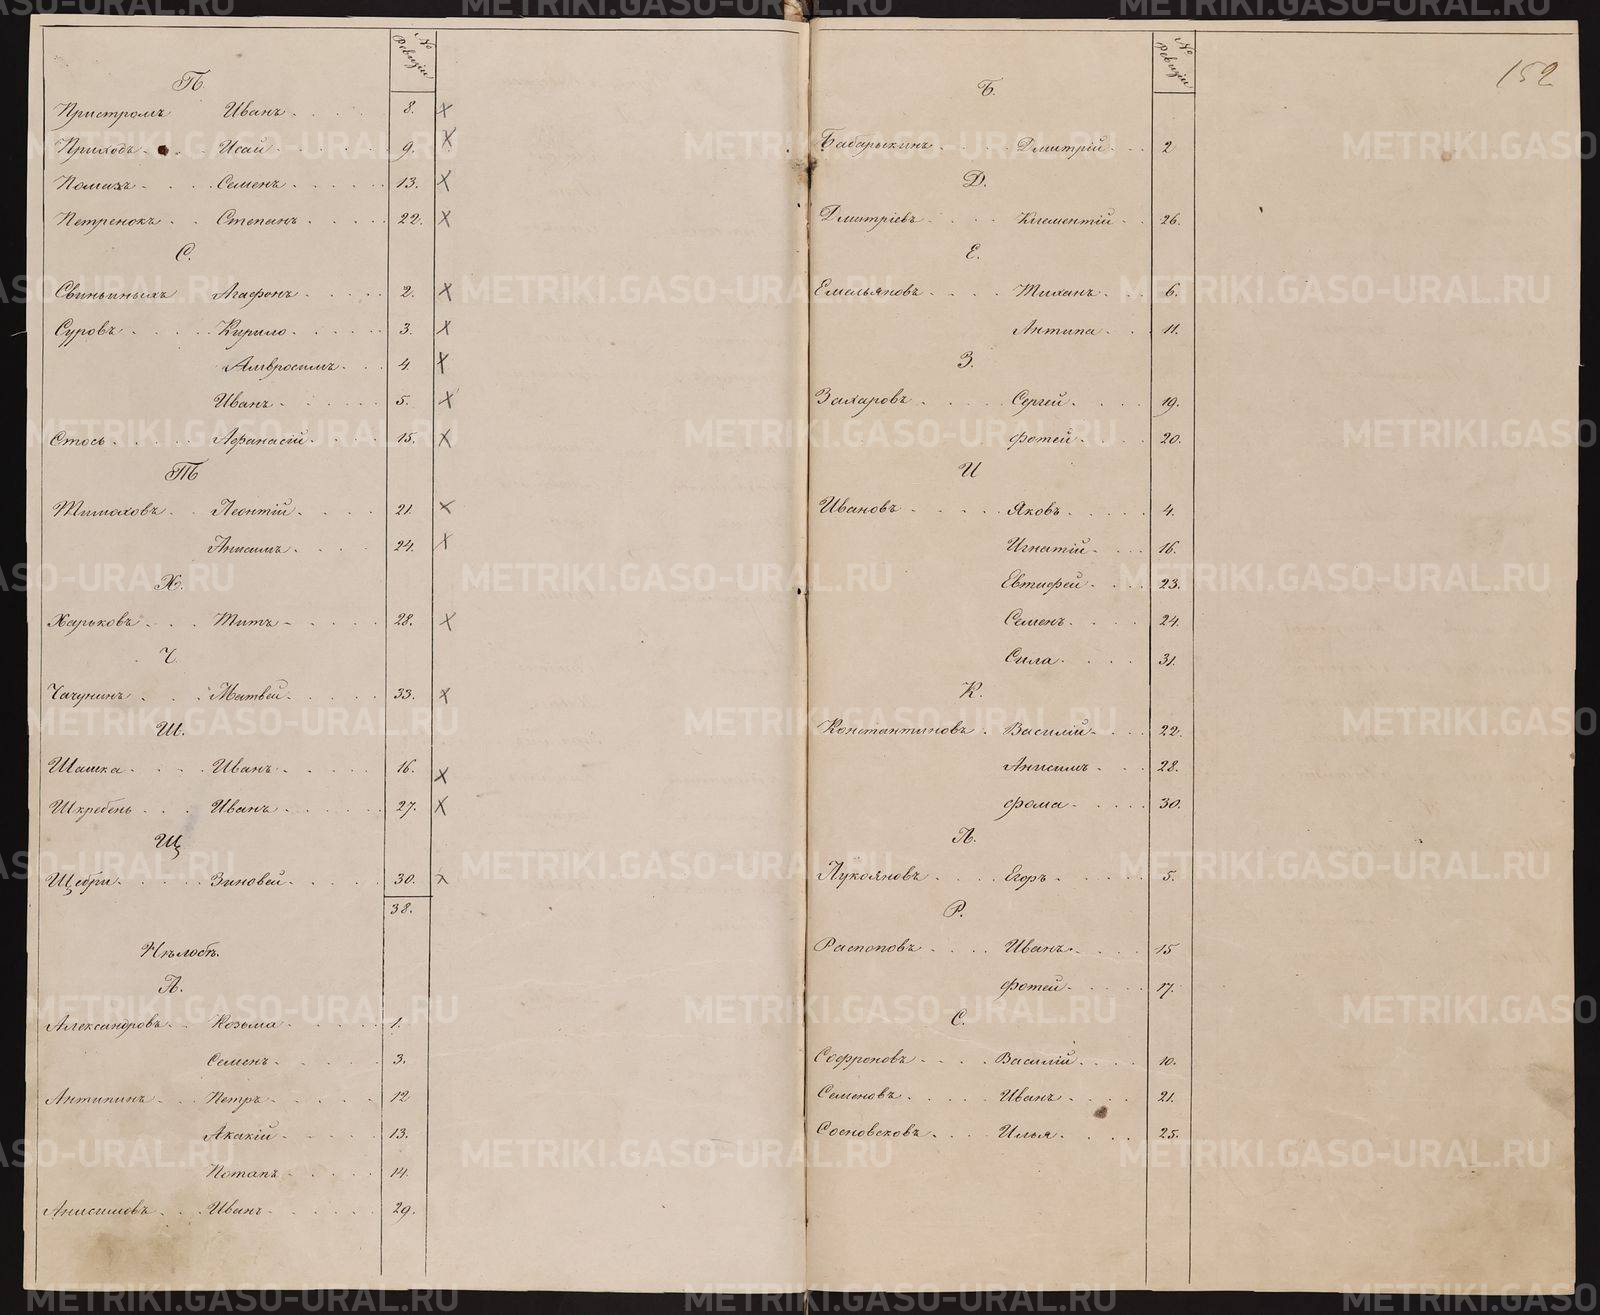 № Ревизіи
П.
Пристромъ Иванъ 8.
Приходъ Исай 9.
Помазъ Семенъ 13.
Петренокъ Степанъ 22.
С.
Свиньиныхъ Агафонъ 2.
Суровъ Кирило 3.
Амвросимъ 4.
Иванъ 5.
Стось Афанасій 15.
Т
Тимаховъ Леонтій 21.
Анисимъ 24.
Х.
Харьковъ Титъ 28.
Ч.
Чагунинъ Матвей 33.
Ш.
Шашка Иванъ 16.
Шкребень Иванъ 27.
Щ
Щебри Зиновей 30.
38.
А.
Александровъ Козьма 1.
Семенъ 3.
Антипинъ Петръ 12
Акакій 13.
Потапъ 14.
Анисимовъ Иванъ 29.
152
№ Ревизіи
Б.
Бабарыкинъ Дмитрій 2
Д.
Дмитріевъ Клементій 26.
Е.
Емельяновъ Тиханъ 6.
Антипа 11.
З.
Захаровъ Сергей 19.
Фотей 20.
И
Ивановъ Яковъ 4.
Игнатій 16.
Евтифей 23.
Семенъ 24.
Сила 31.
К.
Константиновъ Василій 22.
Анисимъ 28.
Фома 30.
Л.
Лукояновъ Егоръ 5.
Р.
Распоповъ Иванъ 15
Фотей 17.
С.
Софроновъ Василій 10.
Семеновъ Иванъ 21.
Сосновсковъ Илья 25.
METRIKI.GASO-URAL.RU